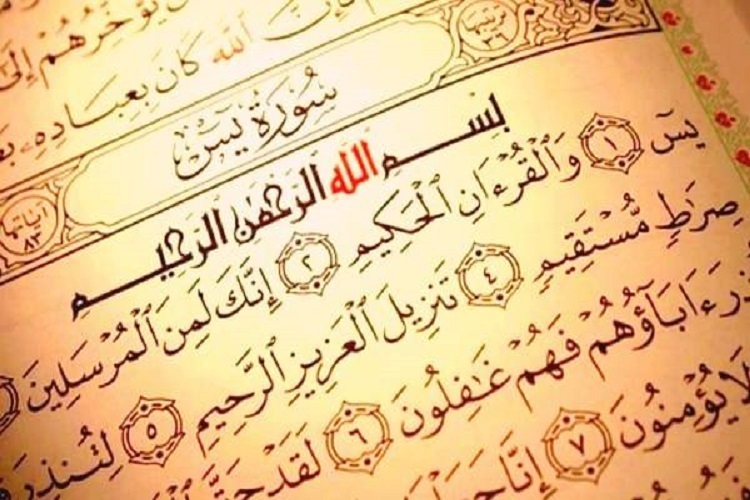 يُؤَخِّرُهُمْ إِلَىٰ
ٱللَّهَ كَانَ بِعِبَادِهِۦ
سُورَةُ يسٓ
ترتيبها ٣٦
آياتها ٨٣
بِسْمِ ٱللَّهِ ٱلرَّحْمَٰنِ ٱلرَّحِيمِ
يسٓ ١ وَٱلْقُرْءَانِ ٱلْحَكِيمِ ٢ إِنَّكَ لَمِنَ ٱلْمُرْسَلِينَ
صِرَٰطٍ مُّسْتَقِيمٍ ٤ تَنزِيلَ ٱلْعَزِيزِ ٱلرَّحِيمِ ٥ لِتُنذِرَ
ءَابَآؤُهُمْ فَهُمْ غَٰفِلُونَ ٦ لَقَدْ حَقَّ
لَا يُؤْمِنُونَ ٧ إِنَّا